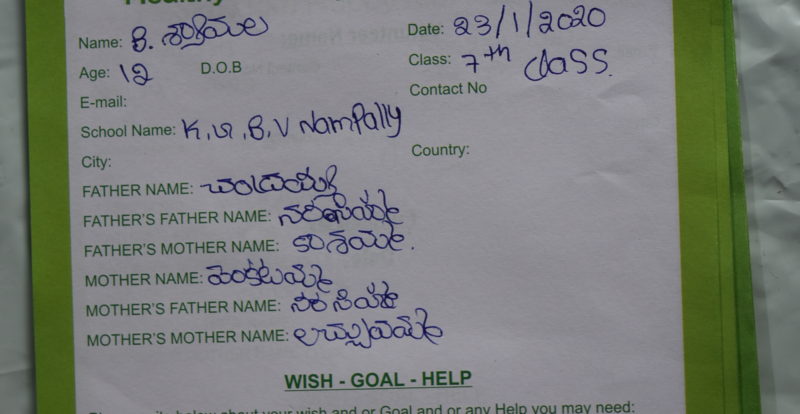 Healthy
Name: కి. శ్యామల Date: 23/1/2020
Age: 12 D.O.B Class: 7th class.
E-mail: Contact No
School Name: K, G, B, V Nampally
City: Country:
FATHER NAME: చంద్రయ్య
FATHER'S FATHER NAME: నరసయ్య
FATHER'S MOTHER NAME: కాశమ్మ.
MOTHER NAME: వెంకటమ్మ
MOTHER'S FATHER NAME: నర్సయ్య
MOTHER'S MOTHER NAME: లచ్చవమ్మ
WISH - GOAL - HELP
below about your wish and or Goal and or any Help you may need: